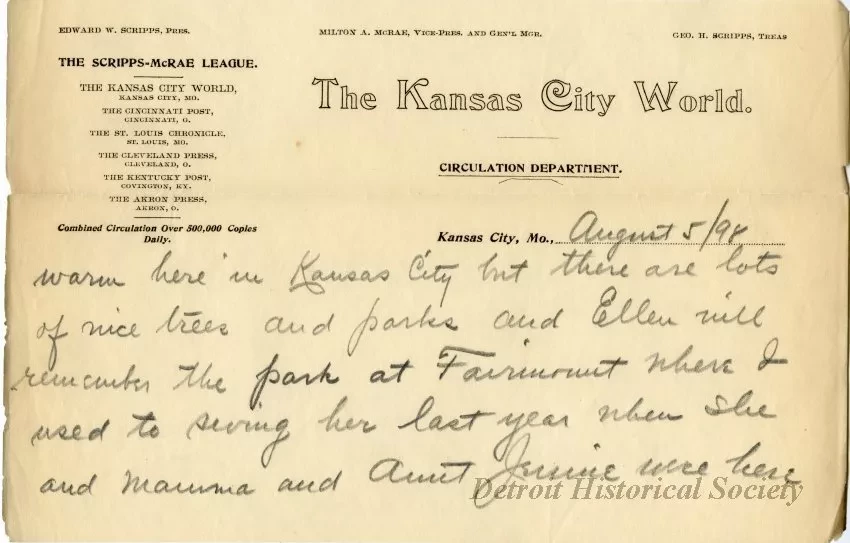 EDWARD W. SCRIPPS, PRES.
MILTON A. MCRAE, VICE-PRES. AND GEN'L MGR.
GEO. H. SCRIPPS, TREAS
THE SCRIPPS-MCRAE LEAGUE.
THE KANSAS CITY WORLD,
KANSAS CITY, MO.
THE CINCINNATI POST,
CINCINNATI, O.
THE ST. LOUIS CHRONICLE,
ST. LOUIS, MO.
THE CLEVELAND PRESS,
CLEVELAND, O.
THE KENTUCKY POST,
COVINGTON, KY.
THE AKRON PRESS,
AKRON, O.
Combined Circulation Over 500,000 Copies
Daily.
The Kansas City World.
CIRCULATION DEPARTMENT.
Kansas City, Mo., August 5/98
warm here in Kansas City but there are lots
of nice trees and parks and Ellen will
remember the park at Fairmount where I
used to swing her last year when she
and mamma and Aunt Jennie were here
Detroit Historical Society